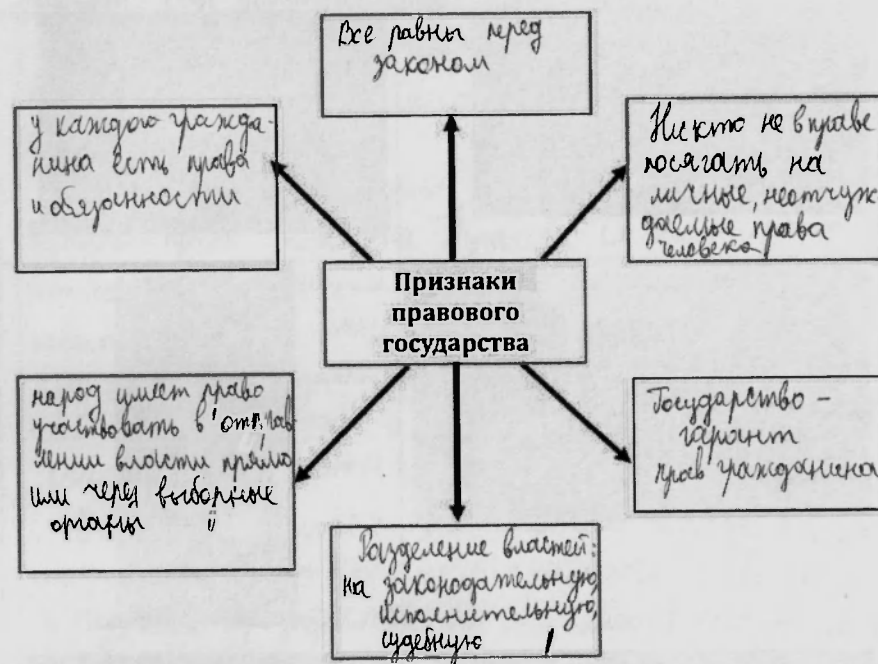 Все равны перед
законом
у каждого гражда-
нина есть права
и обязанности
Никто не вправе
посягать на
личные, неотчуж
даемые права
человека
Признаки
правового
государства
народ имеет право
участвовать в "отправ
лении власти прямо
или через выборные
органы "
Государство -
гарант
прав гражданина
Разделение властей:
на законодательную,
исполнительную,
судебную